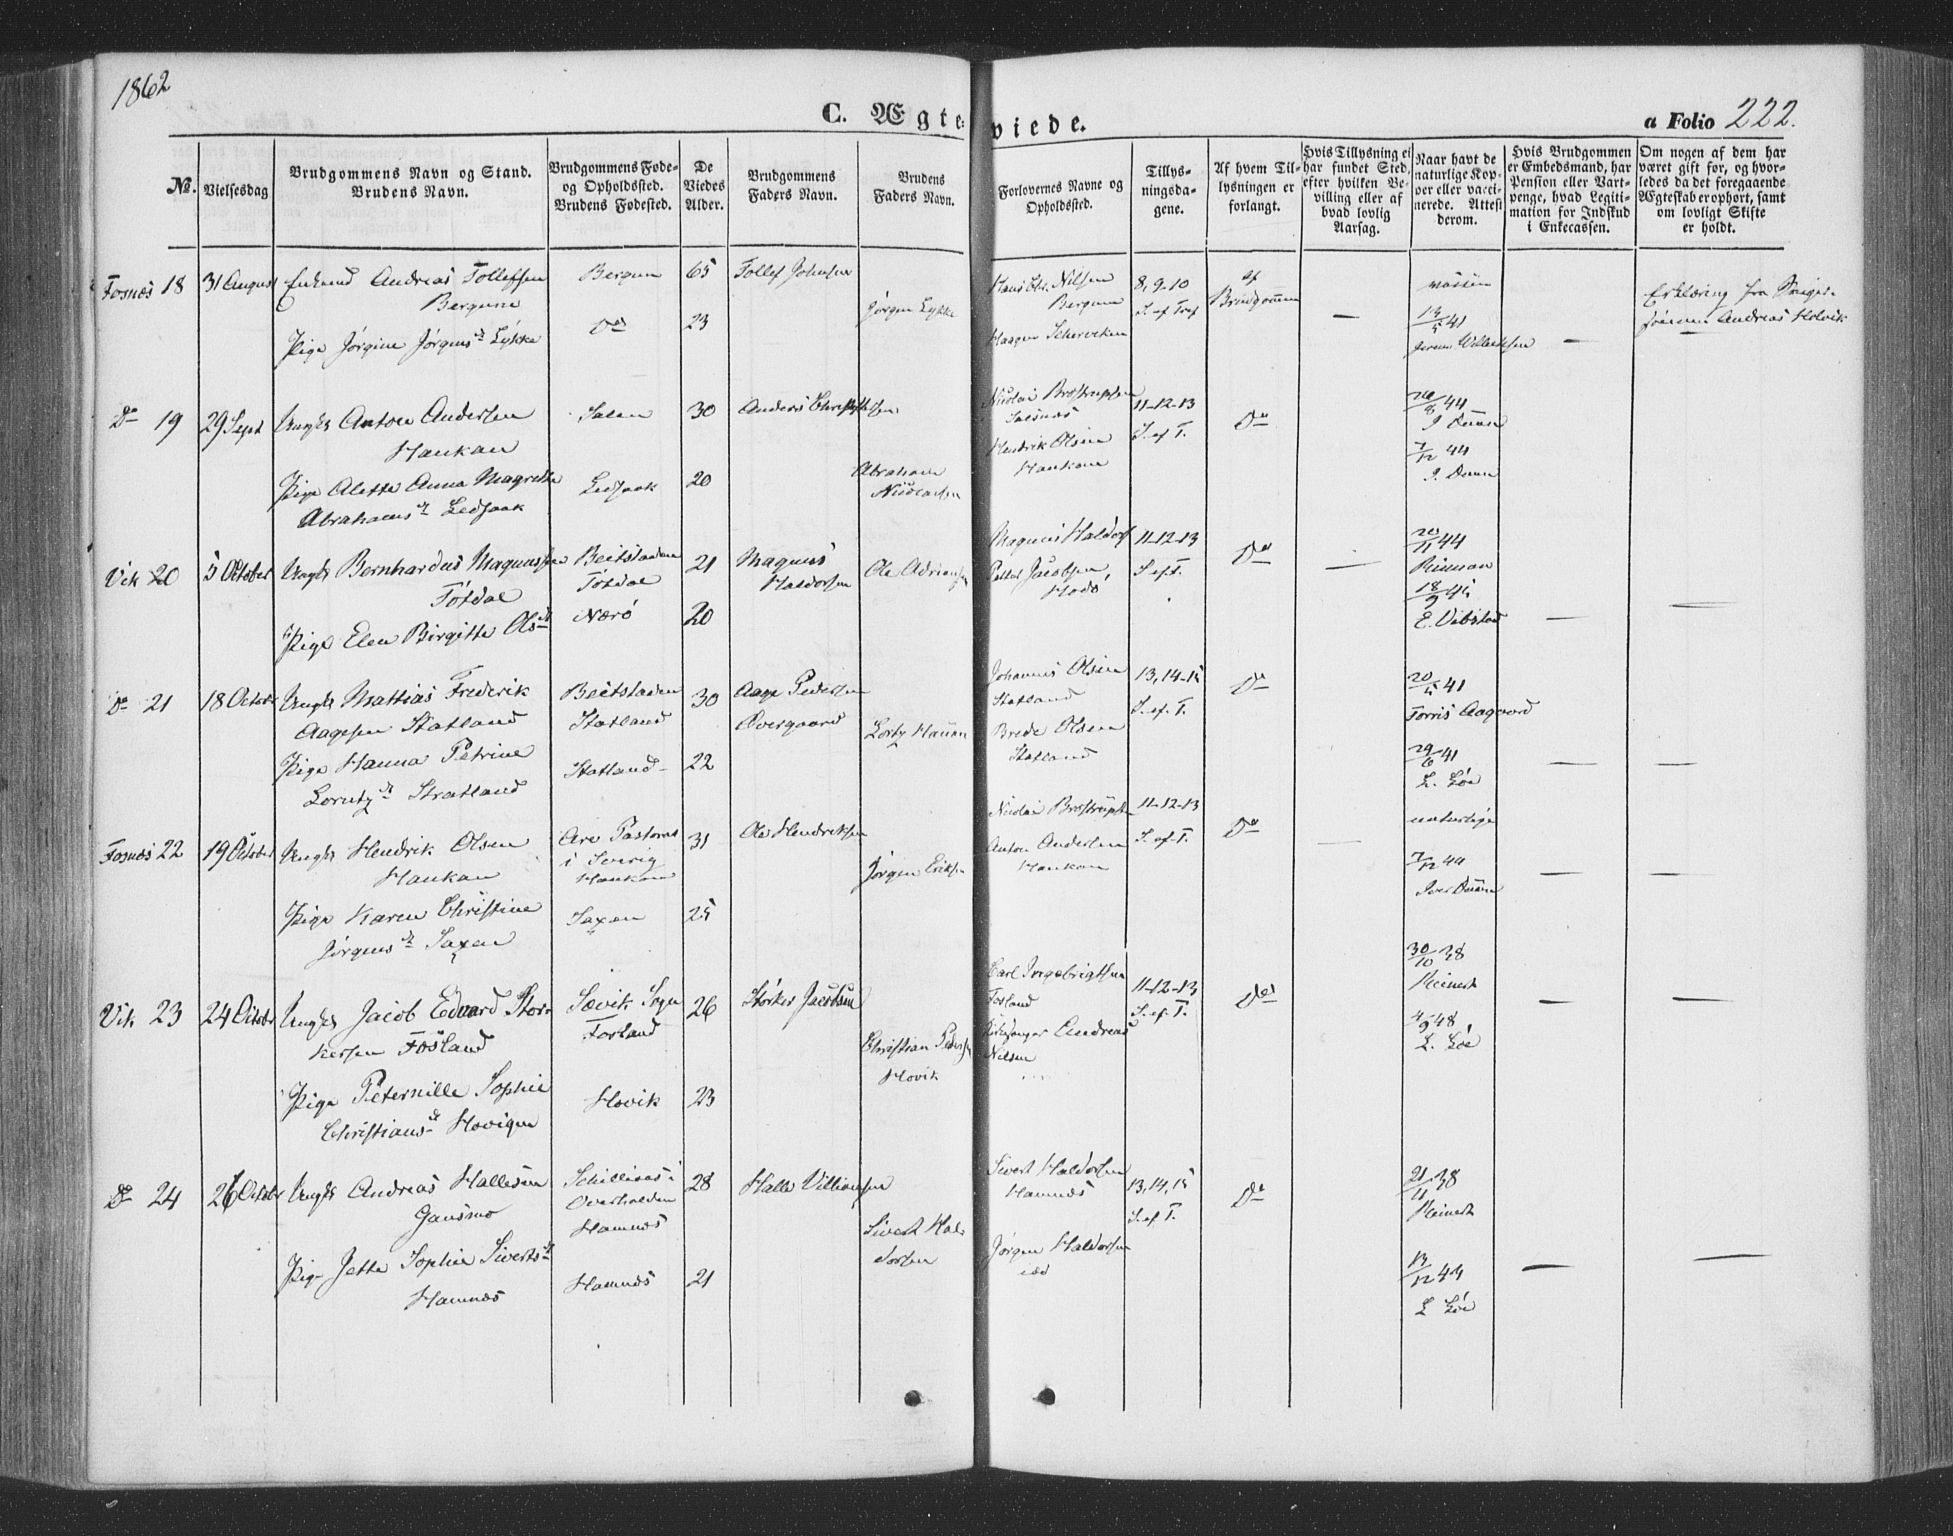 1862
C. Ægteviede.
a Folio 222.
No.
Vielsesdag
Brudgommens Navn og Stand.
Brudens Navn.
Brudgommens Føde-
og Opholdssted.
Brudens Fødested.
De
Viedes
Alder.
Brudgommens
Faders Navn.
Brudens
Faders Navn.
Forlovernes Navne og
Opholdssted.
Tillys-
ningsda-
gene.
Af hvem Til-
lysningen er
forlangt.
Hvis Tillysning ei
har fundet Sted,
efter hvilken Be-
villing eller af
hvad lovlig
Aarsag.
Naar havt de
naturlige Kop-
per eller vacci-
nerede. Attest
derom.
Hvis Brudgommen
er Embedsmand, har
Pension eller Vart-
penge, hvad Legiti-
mation for Indskud
i Enkecassen.
Om nogen af dem har
været gift før, og hvor-
ledes da det foregaaende
Ægteskab er ophørt, samt
om lovligt Skifte
er holdt.
Fosnæs 18
31 August
Enkemd Andreas Tollefsen
Bergune
Pige Jørgine Jørgensdr Lykke
Bergun
Do
65
23
Tollef Johnsen
Jørgen Lykke
Hans Chr. Nilsen
Bergune
Haagen
8, 9-10
S. ef Tref
af
Brudgommen
—
13/5 41
—
Erklæring fra Sviger-
sønnen Andreas Holvik
—
Do 19
29 Sept
Ungkl Anton Andersen
Haukan
Pige Alette Anna Magrethe
Abrahamsdr Ledsaak
Salen
Ledsaak
30
20
Anders Christophersen
Abraham
Nicolaisen
Nicolai Brostrupsen
Salsnæs
Hendrik Olsen
Haukan
11-12-13
S. ef T.
Do
—
20/8 44
I Duun
7/12 44
I. Duun
Vik 20
5 October
Ungkl Bernhardus Magnussen
Tøtdal
Pige Elen Birgitte Olsdr
Beitstaden
Tøtdal
Nærø
21
20
Magnus
Haldorsen
Ole Adriansen
Magnus Haldors
Peller Jacobsen
Hodø
11-12-13
S. ef T.
Do
—
20/11 44
18/9 45
E. Vibstad
—
—
Do 21
18 Octobr
Ungkl Mattias Frederik
Aagesen Statland
Pige Hanna Petrine
Lorntzdr Stratland
Beitstaden
Statland
Statland
30
22
Aage Pedersen
Overgaard
Lortz Hauan
Johannes Olsen
Statland
Brede Olsen
Statland
13, 14-15
S. ef. T.
Do
—
20/5 41
Torris Aagaard
29/6 41
L. Løe
—
—
Fosnæs 22
19 October
Ungkl Hendrik Olsen
Haukan
Pige Karen Christine
Jørgensdr Saxen
Are Pastorat
i Sverig
Haukan
Saxen
31
25
Ole Hendriksen
Jørgen Eriksen
Nicolai Brostrupsen
Anton Andersen
Haukan
11-12-13
S. ef. T.
Do
—
naturlige
7/12 44
Iver Duun
—
—
Vik 23
24 Octobr
Ungkl Jacob Edvard Stor-
kersen Fosland
Pige Peternille Sophie
Christiansdr Hovigen
Sævik Sogn
Forland
Hovik
26
23
Størker Jacobsen
Christian Pedersen
Hovik
Carl Ingebrigtsen
Fosland
Kirkesanger Andreas
Nilsen
11-12-13
S. ef. T.
Do
30/10 38
Meinert
4/9 48
L. Løe
—
—
Do 24
26 Octobr
Ungkl Andreas Hallesen
Gansmo
Pige Jette Sophie Sivertsdr
Hamnæs
Overhalden
Hamnæs
Hamnæs
28
21
Halle Villiamsen
Sivert Hal-
dorsen
Sivert Haldorsen
Hamnæs
Jørgen Haldorsen
13, 14, 15
S. ef T.
Do
21/11 38
Meinert
13/12 44
L Løe
—
—